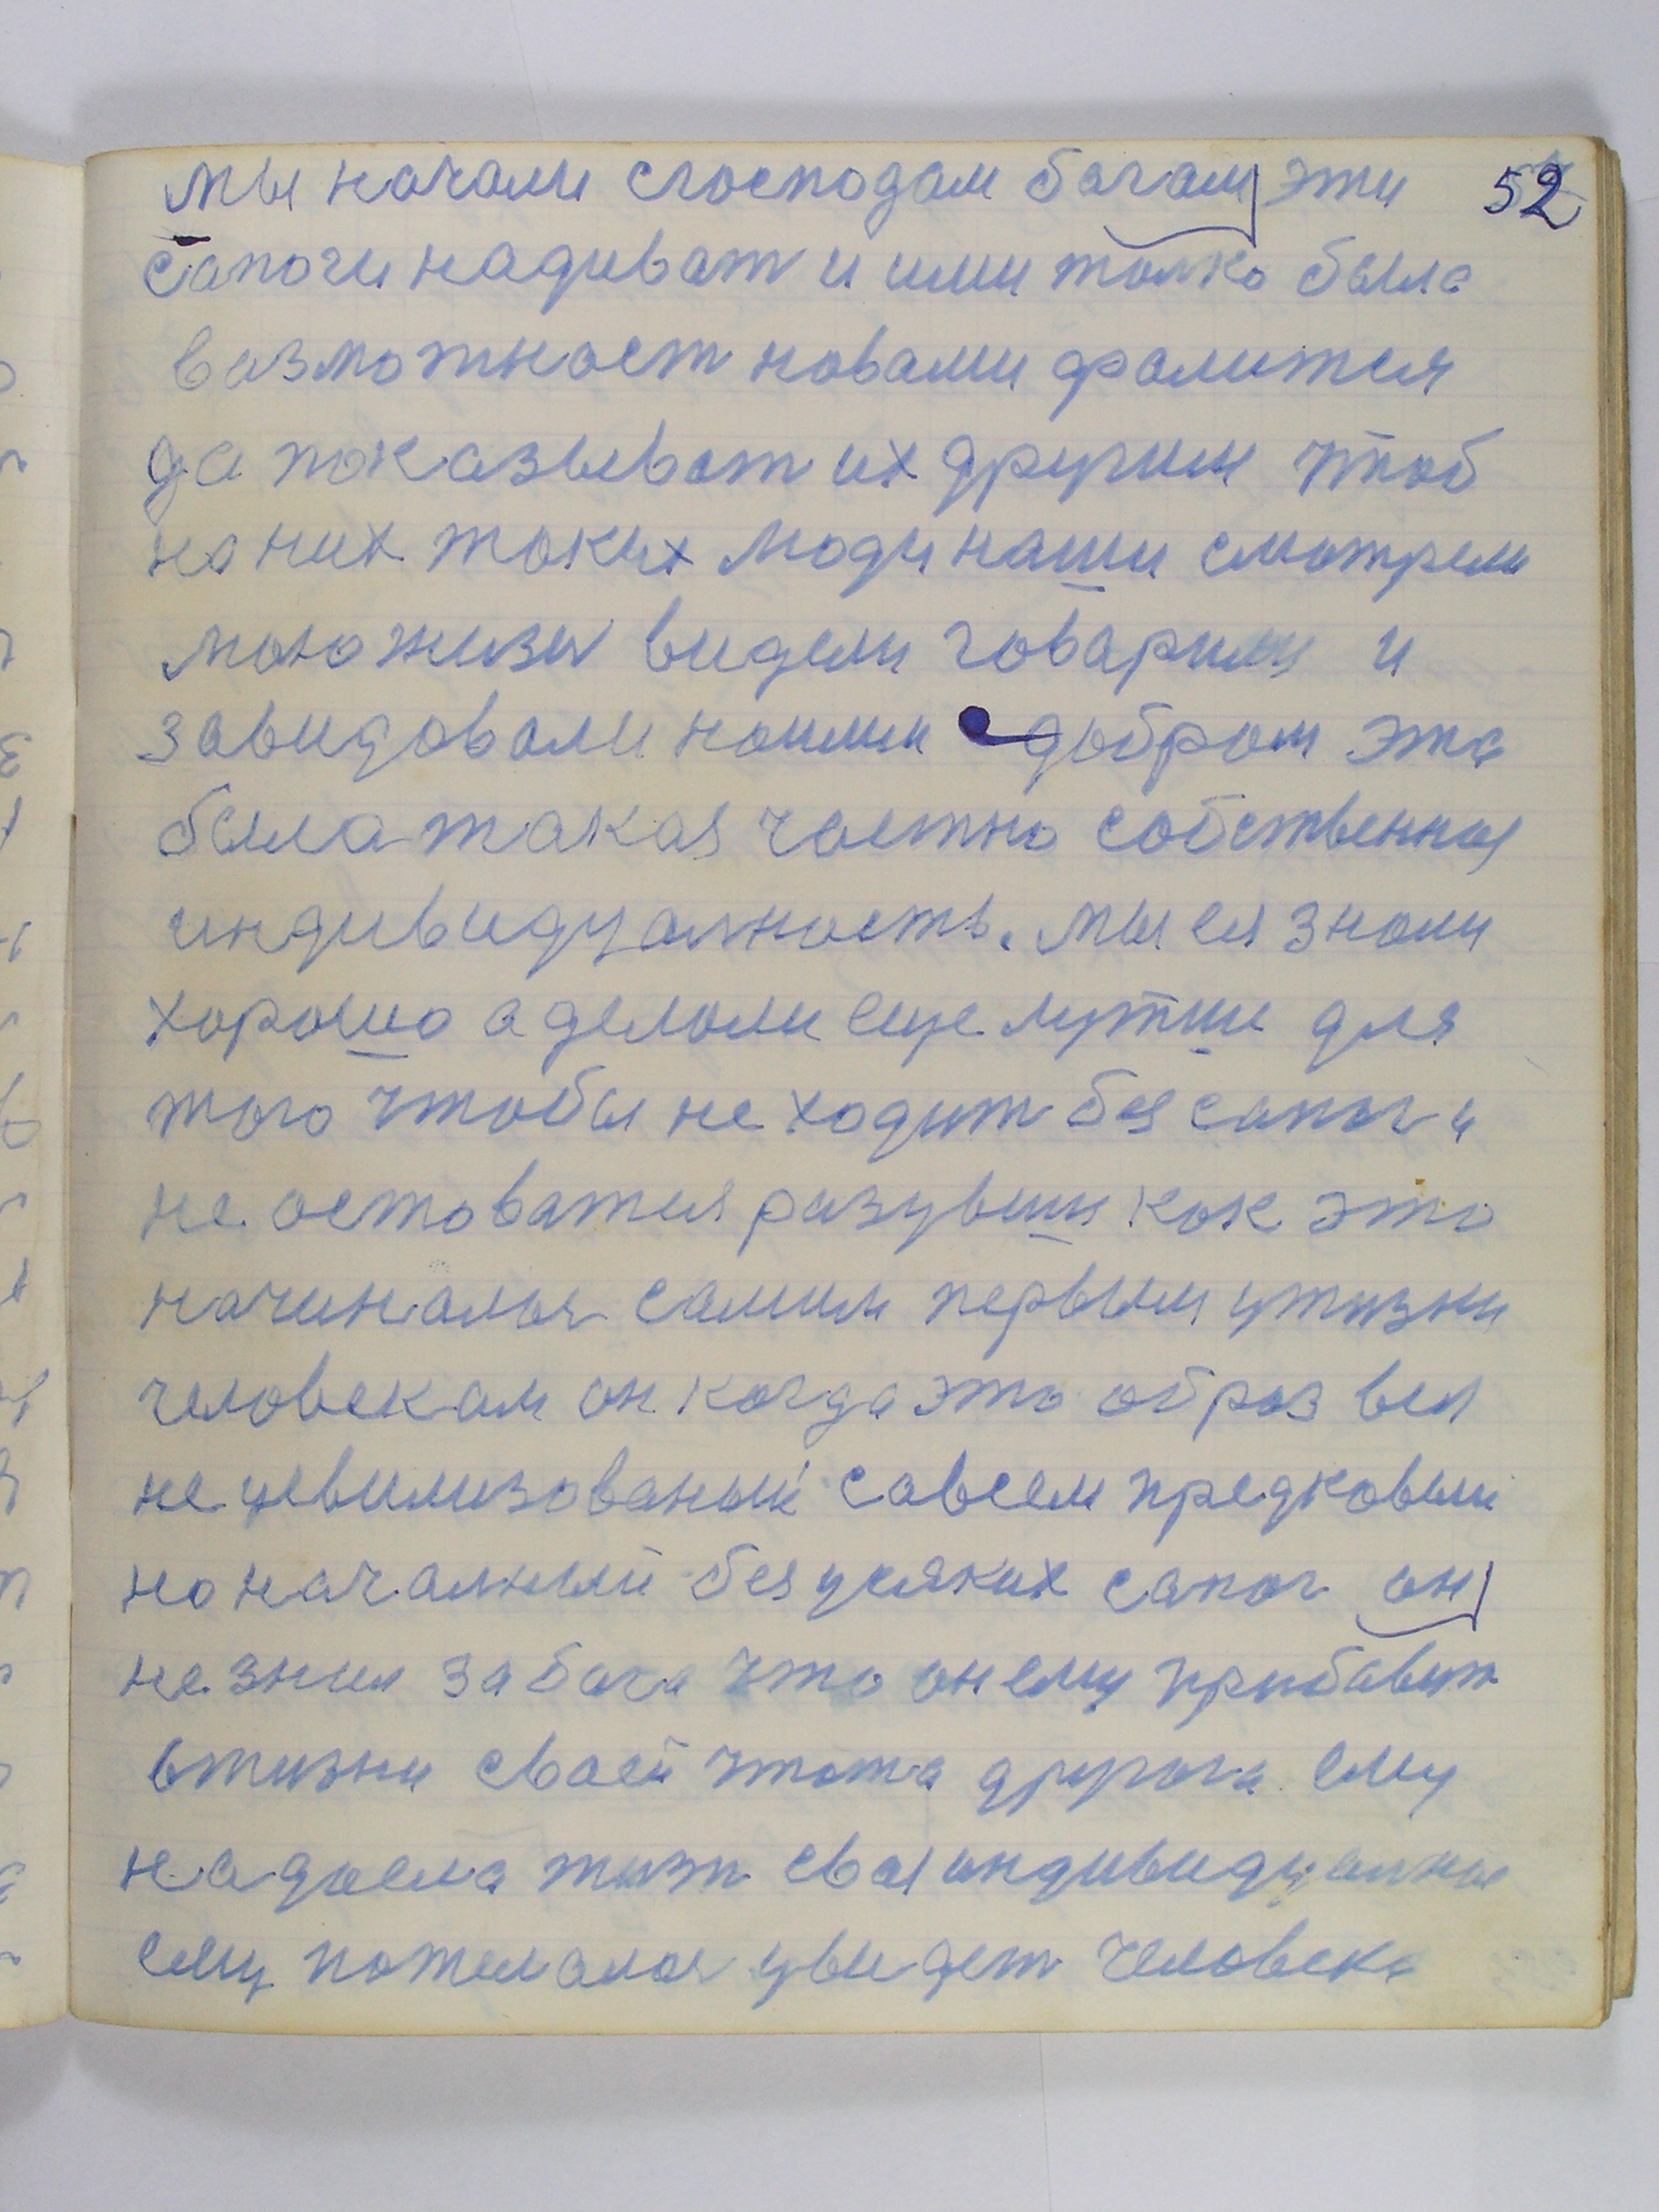 52
мы начали сгосподам багам эти
сапоги надиват и ими толко была
вазможност новами фалится
да показыват их другим чтоб
на них таких люди наши смотрели
видели говарили и
завидовали нашим добром эта
была такая частно собственная
индивидуалность. мы ея знали
хорошо а делали еще лутши для
того чтобы не ходит без сапог и
не оставатся разувши как это
началось самим первым ужизни
человекам он когда это образ вел
не цевилизованый савсем предковым
но началный без усяких сапог он
не знал за бога что он ему прибавит
вжизни своей чтота другога ему
надоела жизн своя индивидуалная
ему пожелалос увидет человека